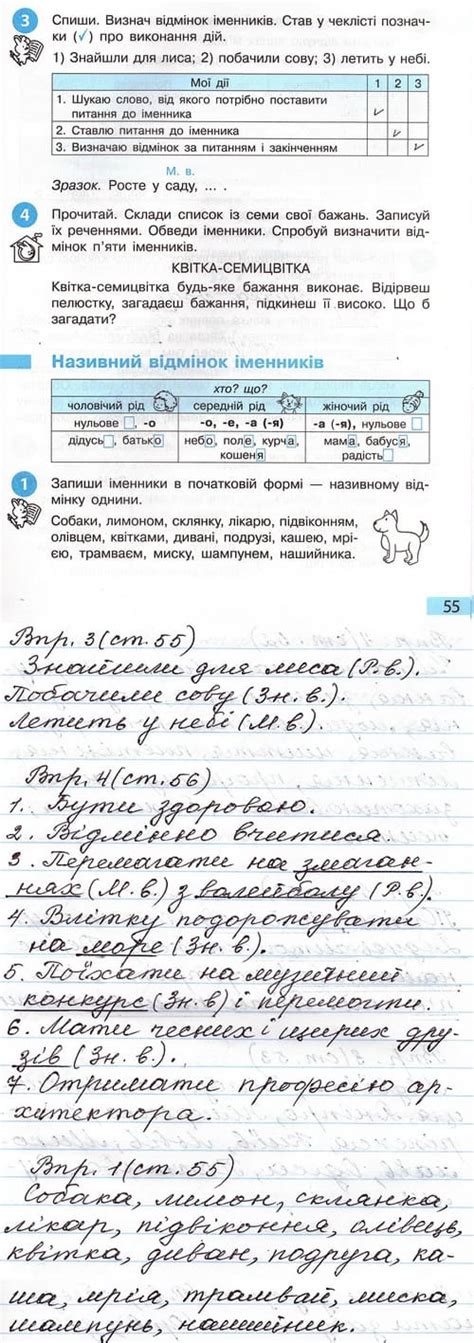 3 Спиши. Визнач відмінок іменників. Став у чеклісті познач-
ки (✓) про виконання дій.
1) Знайшли для лиса; 2) побачили сову; 3) летить у небі.
Мої дії 1 2 3
1. Шукаю слово, від якого потрібно поставити
питання до іменника ✓
2. Ставлю питання до іменника ✓
3. Визначаю відмінок за питанням і закінченням ✓
М. в.
Зразок. Росте у саду, ... .
4 Прочитай. Склади список із семи свої бажань. Записуй
їх реченнями. Обведи іменники. Спробуй визначити від-
мінок п’яти іменників.
КВІТКА-СЕМИЦВІТКА
Квітка-семицвітка будь-яке бажання виконає. Відірвеш
пелюстку, загадаєш бажання, підкинеш її високо. Що б
загадати?
Називний відмінок іменників
хто? що?
чоловічий рід середній рід жіночий рід
нульове □, -о -о, -е, -а (-я) -а (-я), нульове □
дідусь□, батько небо, поле, курча, мама, бабуся,
кошеня радість□
1 Запиши іменники в початковій формі — називному від-
мінку однини.
Собаки, лимоном, склянку, лікарю, підвіконням,
олівцем, квітками, дивані, подрузі, кашею, мрі-
єю, трамваєм, миску, шампунем, нашийника.
55
Впр. 3 (ст. 55)
Знайшли для лиса (Р.в.).
Побачили сову (Зн. в.).
Летить у небі (М.в.).
Впр. 4 (ст. 56)
1. Бути здоровою.
2. Відмінно вчитися.
3. Перемагати на змаган-
нях (М.в.) з волейболу (Р.в.).
4. Влітку подорожувати
на море (Зн. в.).
5. Поїхати на музичний
конкурс (Зн. в) і перемогти.
6. Мати чесних і щирих дру-
зів (Зн. в.).
7. Отримати професію ар-
хітектора.
Впр. 1 (ст. 55)
Собака, лимон, склянка,
лікар, підвіконня, олівець,
квітка, диван, подруга, ка-
ша, мрія, трамвай, миска,
шампунь, нашийник.